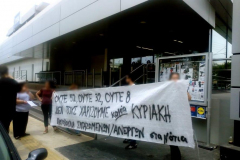 ΟΥΤΕ 52, ΟΥΤΕ 32, ΟΥΤΕ 8
ΔΕΝ ΤΟΥΣ ΧΑΡΙΖΟΥΜΕ καμία ΚΥΡΙΑΚΗ
ΕΡΓΑΖΟΜΕΝΩΝ/ΑΝΕΡΓΩΝ